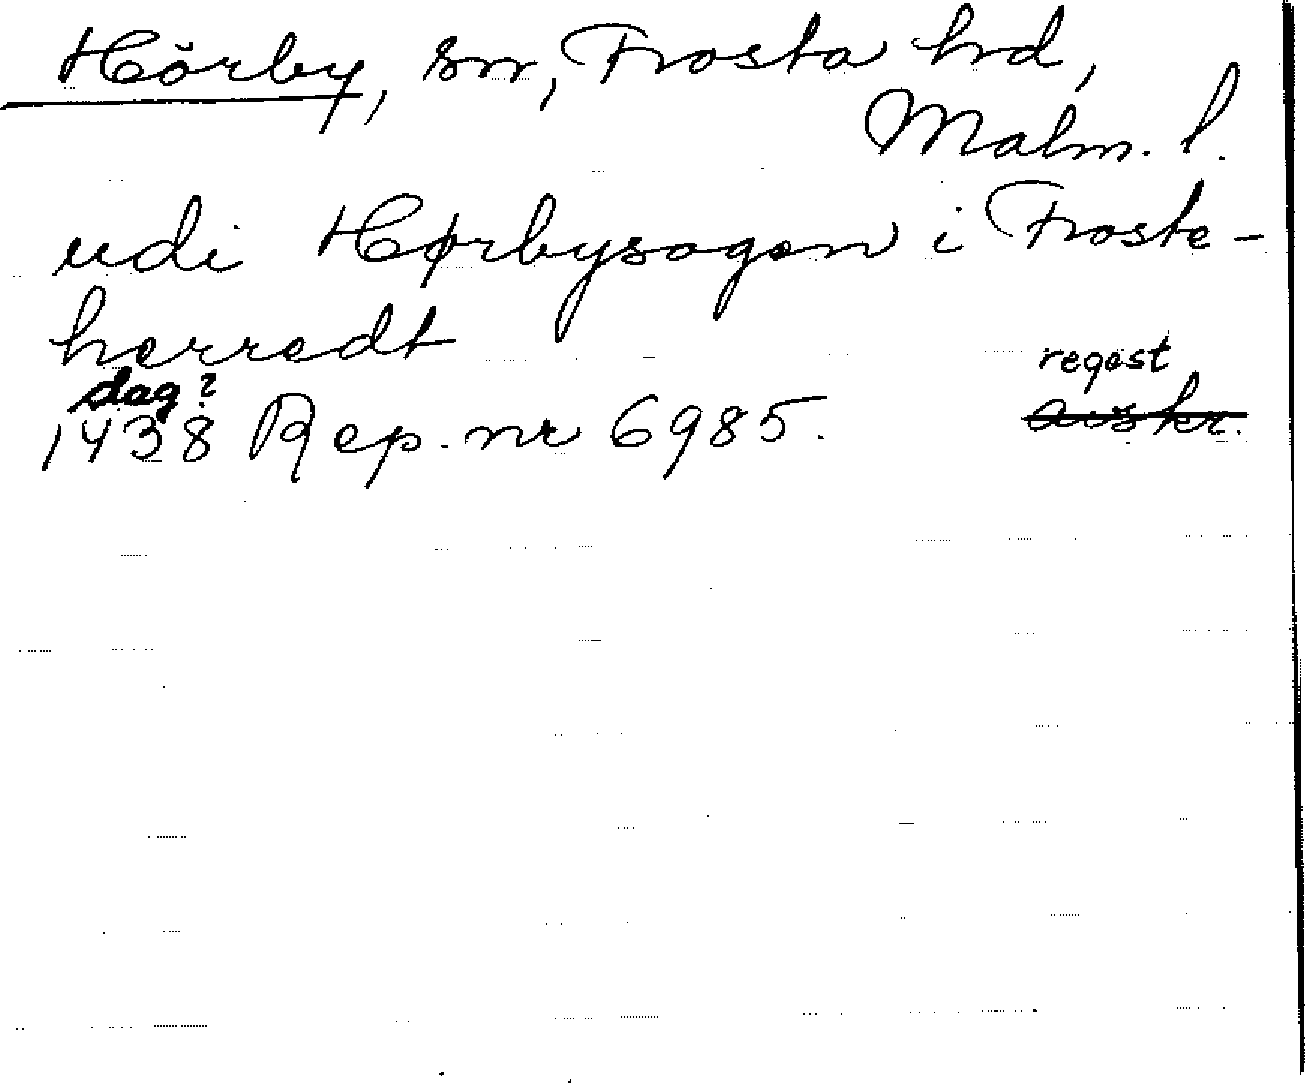 Hörby, sn, Frosta hrd,
Malm. l.
udi Hørbysogen i Froste-
herredt
regest
dag?
1438 Rep. nr 6985. avskr.